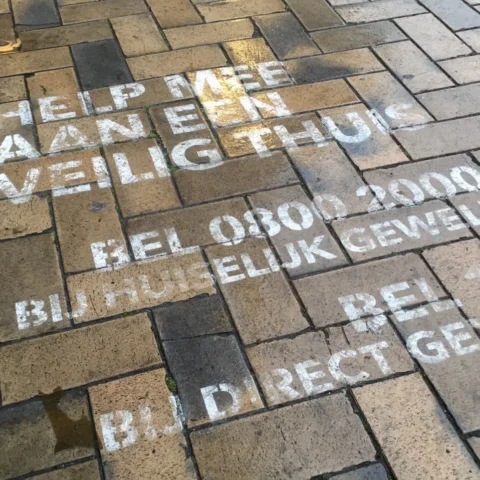 HELP MEE
AAN EEN
VEILIG THUIS
BEL 0800 2000
BIJ HUISELIJK
BEL
BIJ DIRECT